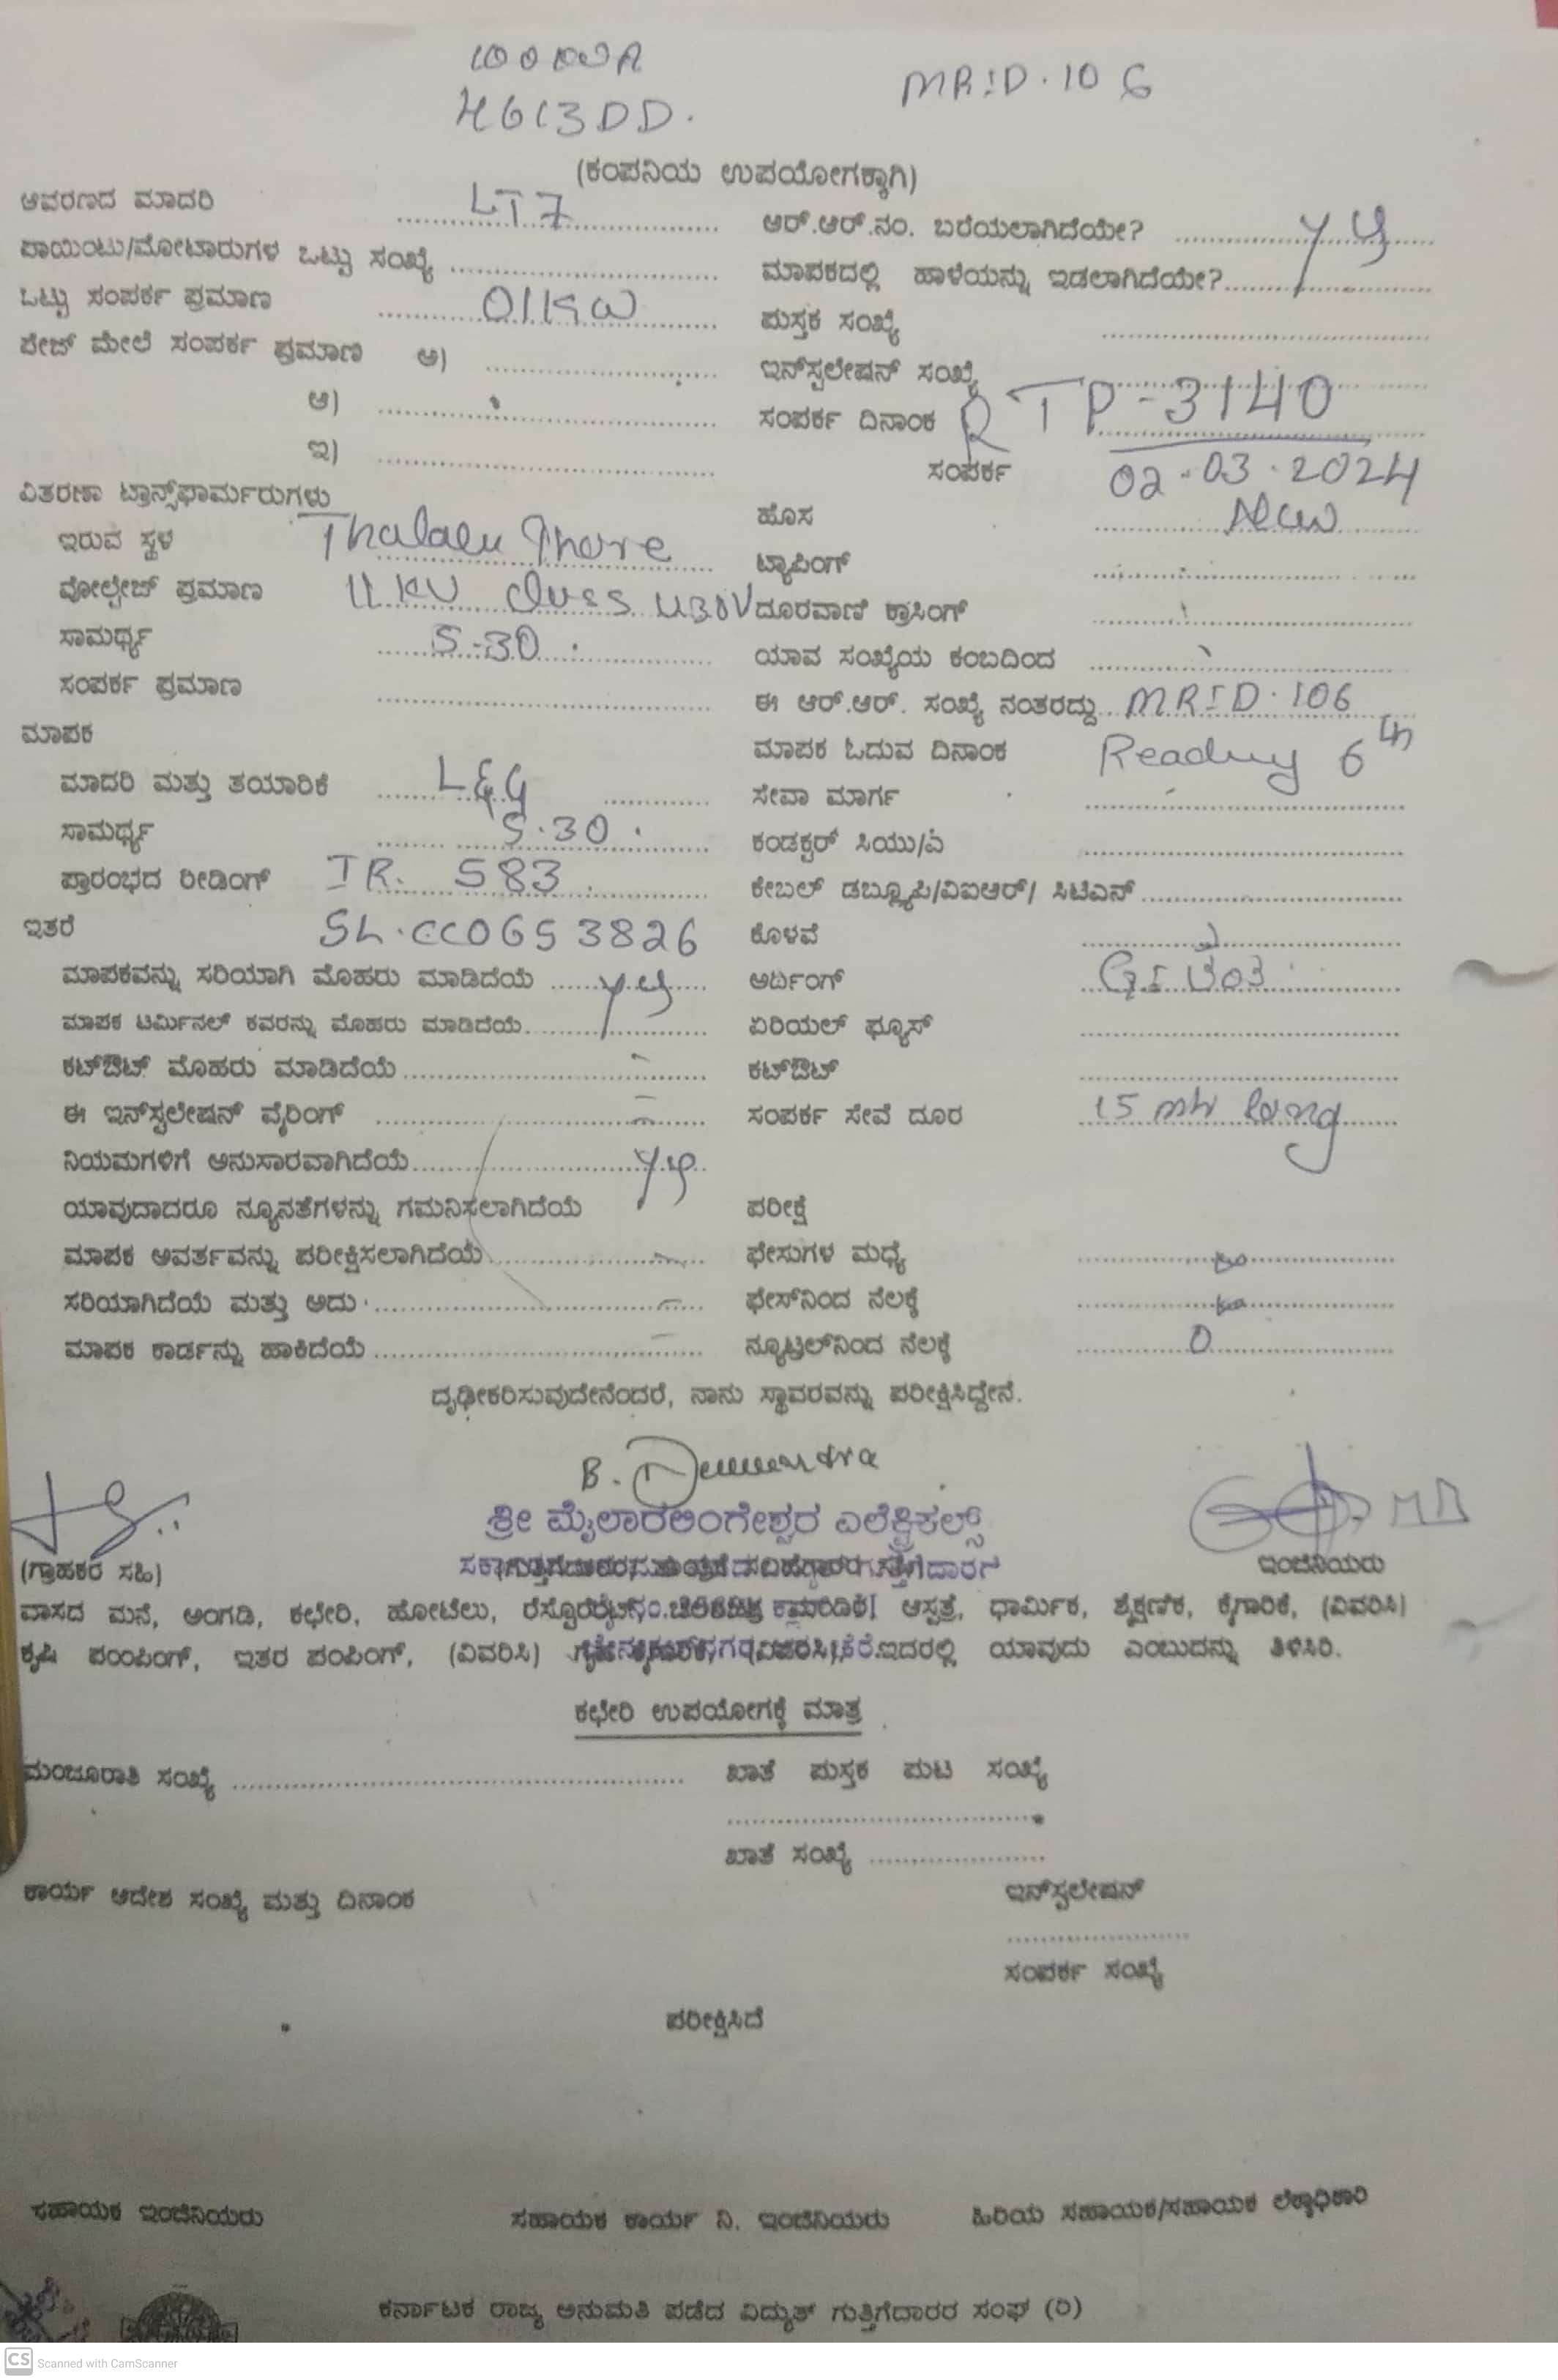 MRID.106
(ಕಂಪನಿಯ ಉಪಯೋಗಕ್ಕಾಗಿ)
ಆವರಣದ ಮಾದರಿ LT7
ಆರ್.ಆರ್.ನಂ. ಬರೆಯಲಾಗಿದೆಯೇ?
ಪಾಯಿಂಟು/ಮೋಟಾರುಗಳ ಒಟ್ಟು ಸಂಖ್ಯೆ
ಮಾಪಕದಲ್ಲಿ ಹಾಳೆಯನ್ನು ಇಡಲಾಗಿದೆಯೇ?
ಒಟ್ಟು ಸಂಪರ್ಕ ಪ್ರಮಾಣ 01KW
ಪುಸ್ತಕ ಸಂಖ್ಯೆ
ಪೇಜ್ ಮೇಲೆ ಸಂಪರ್ಕ ಪ್ರಮಾಣ ಅ)
ಇನ್‌ಸ್ಟಲೇಷನ್ ಸಂಖ್ಯೆ
ಆ)
ಸಂಪರ್ಕ ದಿನಾಂಕ RTP-3140
ಇ)
ಸಂಪರ್ಕ 02-03-2024
ವಿತರಣಾ ಟ್ರಾನ್ಸ್‌ಫಾರ್ಮರುಗಳು
ಹೊಸ New
ಇರುವ ಸ್ಥಳ
ಟ್ಯಾಪಿಂಗ್
ವೋಲ್ಟೇಜ್ ಪ್ರಮಾಣ 11 KV
ದೂರವಾಣಿ ಕ್ರಾಸಿಂಗ್
ಸಾಮರ್ಥ್ಯ 5-30
ಯಾವ ಸಂಖ್ಯೆಯ ಕಂಬದಿಂದ
ಸಂಪರ್ಕ ಪ್ರಮಾಣ
ಈ ಆರ್.ಆರ್. ಸಂಖ್ಯೆ ನಂತರದ್ದು MRID.106
ಮಾಪಕ
ಮಾಪಕ ಓದುವ ದಿನಾಂಕ Reading 6th
ಮಾದರಿ ಮತ್ತು ತಯಾರಿಕೆ L&G
ಸೇವಾ ಮಾರ್ಗ
ಸಾಮರ್ಥ್ಯ 5.30
ಕಂಡಕ್ಟರ್ ಸಿಯು/ಎ
ಪ್ರಾರಂಭದ ರೀಡಿಂಗ್ IR. 583
ಕೇಬಲ್ ಡಬ್ಲ್ಯೂಪಿ/ವಿಐಆರ್/ ಸಿಟಿಎಸ್
ಇತರೆ SL.CC0653826
ಕೊಳವೆ
ಮಾಪಕವನ್ನು ಸರಿಯಾಗಿ ಮೊಹರು ಮಾಡಿದೆಯೆ
ಅರ್ಥಿಂಗ್
ಮಾಪಕ ಟರ್ಮಿನಲ್ ಕವರನ್ನು ಮೊಹರು ಮಾಡಿದೆಯೆ
ಏರಿಯಲ್ ಫ್ಯೂಸ್
ಕಟ್‌ಔಟ್ ಮೊಹರು ಮಾಡಿದೆಯೆ
ಕಟ್‌ಔಟ್
ಈ ಇನ್‌ಸ್ಟಲೇಷನ್ ವೈರಿಂಗ್
ಸಂಪರ್ಕ ಸೇವೆ ದೂರ 15 long
ನಿಯಮಗಳಿಗೆ ಅನುಸಾರವಾಗಿದೆಯೆ
ಯಾವುದಾದರೂ ನ್ಯೂನತೆಗಳನ್ನು ಗಮನಿಸಲಾಗಿದೆಯೆ
ಪರೀಕ್ಷೆ
ಮಾಪಕ ಆವರ್ತವನ್ನು ಪರೀಕ್ಷಿಸಲಾಗಿದೆಯೆ
ಫೇಸುಗಳ ಮಧ್ಯೆ
ಸರಿಯಾಗಿದೆಯೆ ಮತ್ತು ಅದು
ಫೇಸ್‌ನಿಂದ ನೆಲಕ್ಕೆ
ಮಾಪಕ ಕಾರ್ಡನ್ನು ಹಾಕಿದೆಯೆ
ನ್ಯೂಟ್ರಲ್‌ನಿಂದ ನೆಲಕ್ಕೆ 0
ದೃಢೀಕರಿಸುವುದೇನೆಂದರೆ, ನಾನು ಸ್ಥಾವರವನ್ನು ಪರೀಕ್ಷಿಸಿದ್ದೇನೆ.
ಶ್ರೀ ಮೈಲಾರಲಿಂಗೇಶ್ವರ ಎಲೆಕ್ಟ್ರಿಕಲ್ಸ್
(ಗ್ರಾಹಕರ ಸಹಿ)
ಇಂಜಿನಿಯರು
ವಾಸದ ಮನೆ, ಅಂಗಡಿ, ಕಛೇರಿ, ಹೋಟೆಲು, ಆಸ್ಪತ್ರೆ, ಧಾರ್ಮಿಕ, ಶೈಕ್ಷಣಿಕ, ಕೈಗಾರಿಕೆ, (ವಿವರಿಸಿ)
ಕೃಷಿ ಪಂಪಿಂಗ್, ಇತರ ಪಂಪಿಂಗ್, (ವಿವರಿಸಿ) ಇದರಲ್ಲಿ ಯಾವುದು ಎಂಬುದನ್ನು ತಿಳಿಸಿರಿ.
ಕಛೇರಿ ಉಪಯೋಗಕ್ಕೆ ಮಾತ್ರ
ಮಂಜೂರಾತಿ ಸಂಖ್ಯೆ
ಖಾತೆ ಪುಸ್ತಕ ಪುಟ ಸಂಖ್ಯೆ
ಖಾತೆ ಸಂಖ್ಯೆ
ಕಾರ್ಯ ಆದೇಶ ಸಂಖ್ಯೆ ಮತ್ತು ದಿನಾಂಕ
ಇನ್‌ಸ್ಟಲೇಷನ್
ಸಂಪರ್ಕ ಸಂಖ್ಯೆ
ಪರೀಕ್ಷಿಸಿದೆ
ಸಹಾಯಕ ಇಂಜಿನಿಯರು
ಸಹಾಯಕ ಕಾರ್ಯ ನಿ. ಇಂಜಿನಿಯರು
ಹಿರಿಯ ಸಹಾಯಕ/ಸಹಾಯಕ ಲೆಕ್ಕಾಧಿಕಾರಿ
ಕರ್ನಾಟಕ ರಾಜ್ಯ ಅನುಮತಿ ಪಡೆದ ವಿದ್ಯುತ್ ಗುತ್ತಿಗೆದಾರರ ಸಂಘ (ರಿ)
CS Scanned with CamScanner